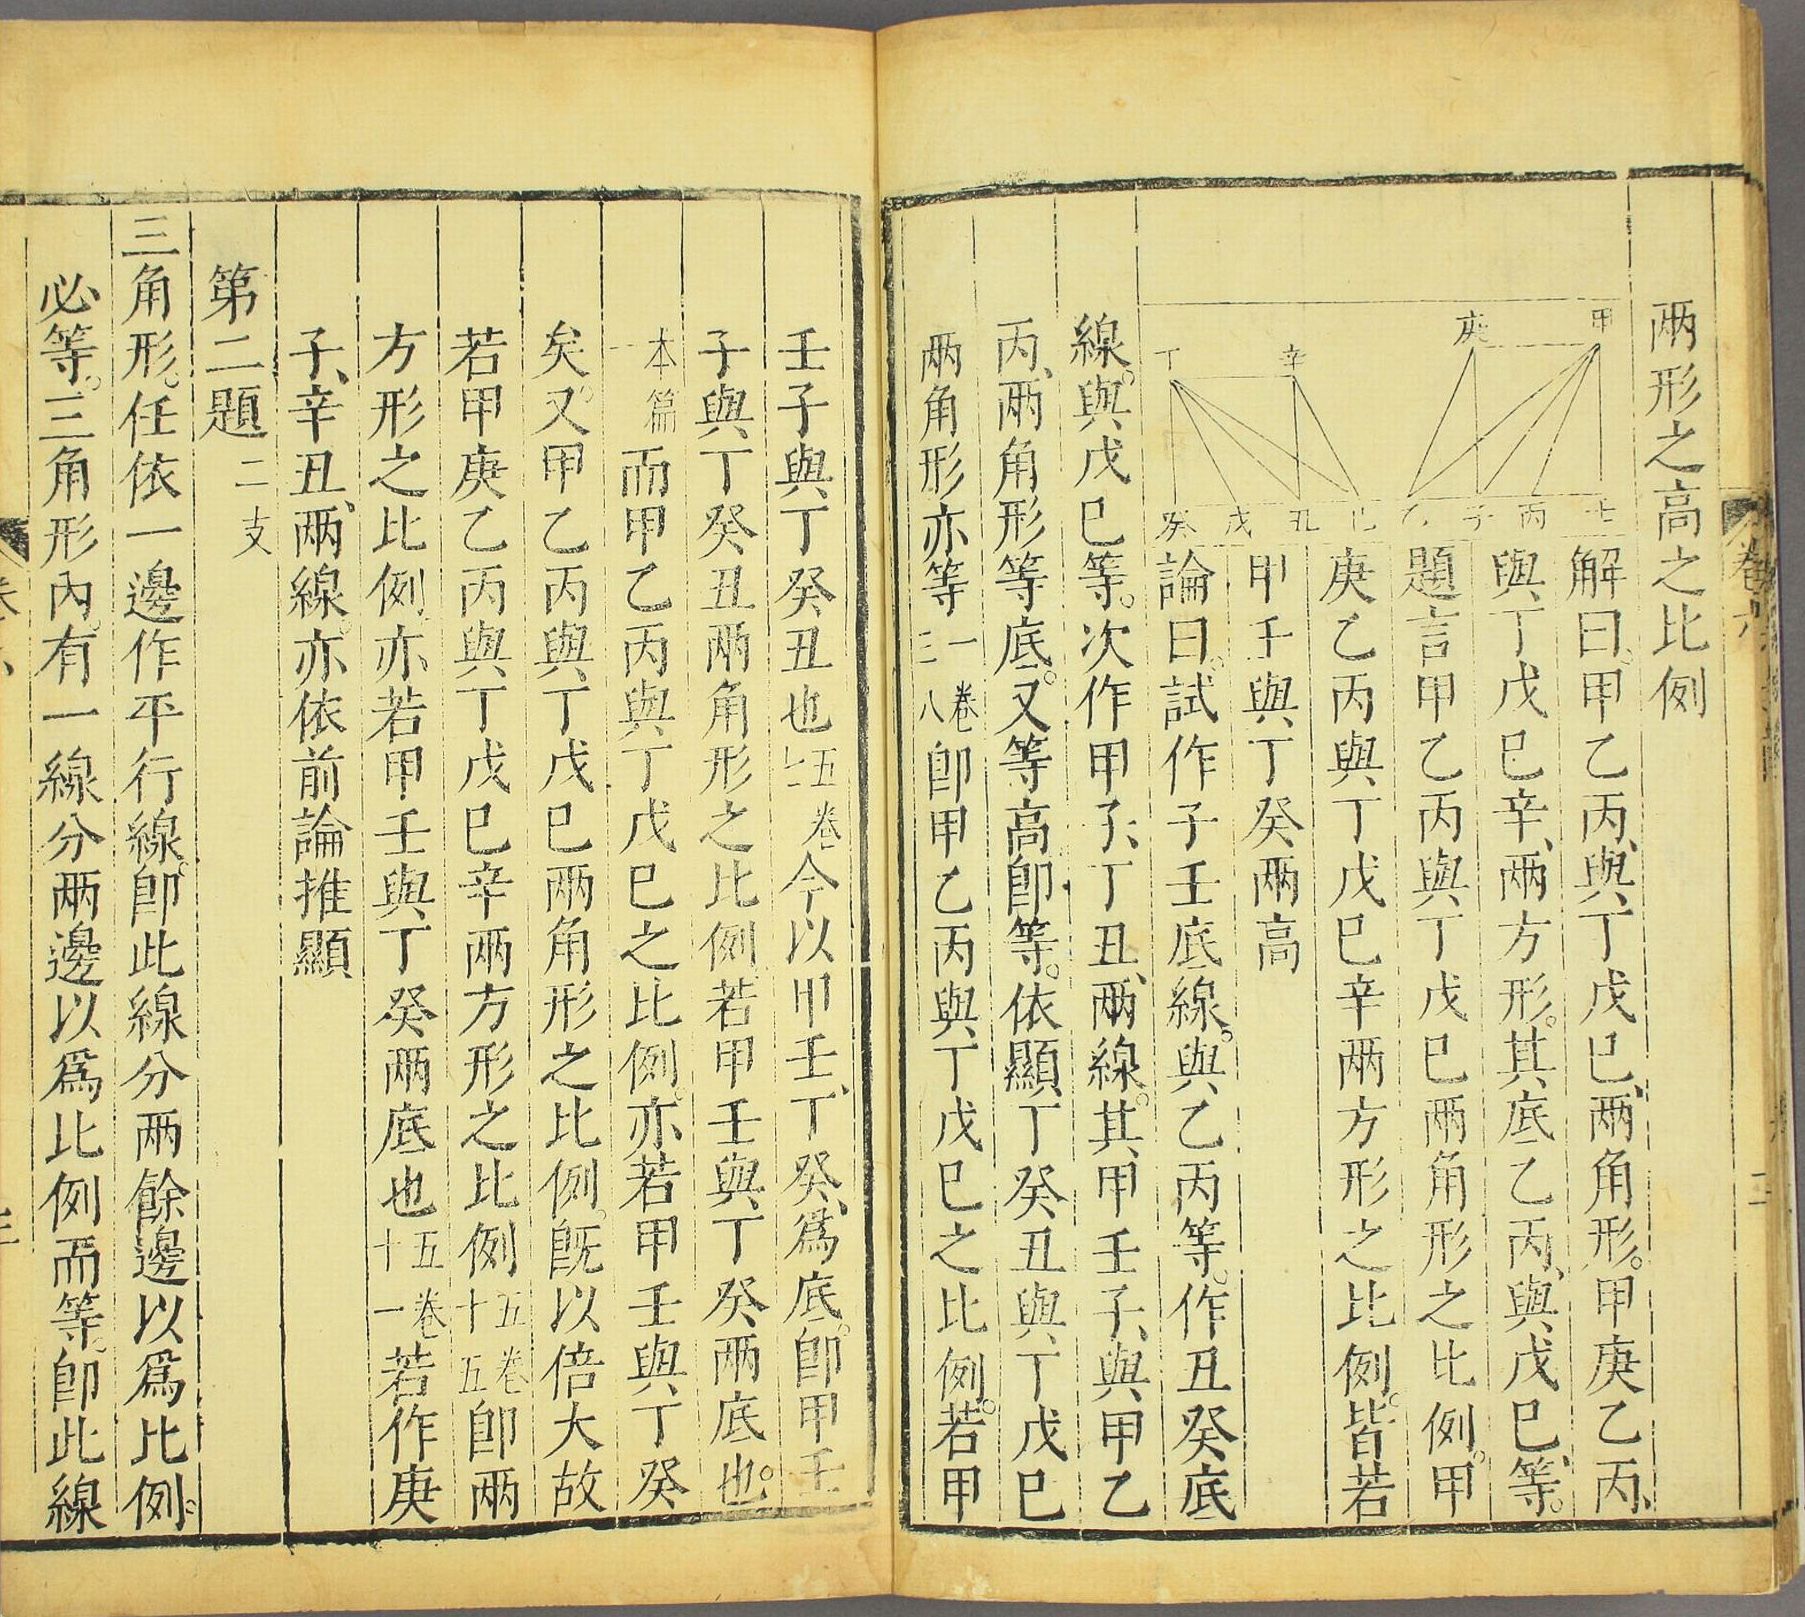 卷六
二
兩形之高之比例
甲
庚
辛
丁
壬
丙
子
乙
己
丑
戊
癸
解曰。甲乙丙、與丁戊巳、兩角形。甲庚乙丙、
與丁戊巳辛、兩方形。其底乙丙、與戊巳、等。
題言甲乙丙與丁戊巳兩角形之比例。甲
庚乙丙與丁戊巳辛兩方形之比例。皆若
甲壬與丁癸兩高
論曰。試作子壬底線。與乙丙等。作丑癸底
線。與戊巳等。次作甲子、丁丑、兩線。其甲壬子、與甲乙
丙、兩角形等底。又等高、卽等。依顯丁癸丑與丁戊巳
兩角形亦等一卷三八卽甲乙丙與丁戊巳之比例。若甲
壬子與丁癸丑也五卷七今以甲壬、丁癸、爲底。卽甲壬
子與丁癸丑兩角形之比例若甲壬與丁癸兩底也。
本篇一而甲乙丙與丁戊巳之比例。亦若甲壬與丁癸
矣。又甲乙丙與丁戊巳兩角形之比例。旣以倍大故
若甲庚乙丙與丁戊巳辛兩方形之比例五卷十五卽兩
方形之比例亦若甲壬與丁癸兩底也五卷十一若作庚
子、辛丑、兩線。亦依前論推顯
第二題二支
三角形。任依一邊作平行線。卽此線分兩餘邊以爲比例。
必等。三角形內。有一線分兩邊以爲比例而等。卽此線